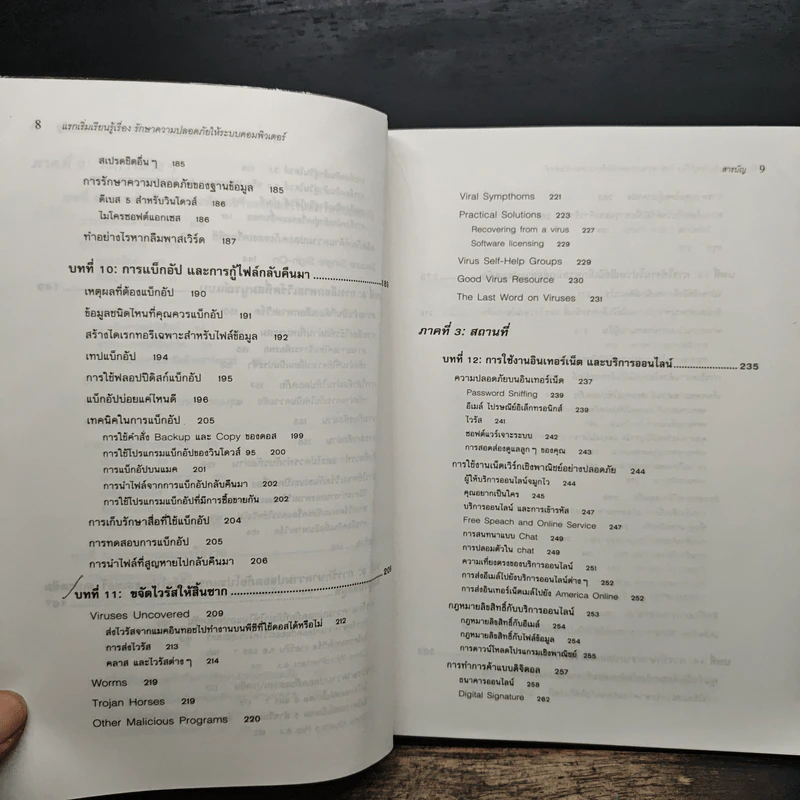 8 แรกเริ่มเรียนรู้เรื่อง รักษาความปลอดภัยให้ระบบคอมพิวเตอร์
สเปรดชีตอื่น ๆ 185
การรักษาความปลอดภัยของฐานข้อมูล 185
ดีเบส 5 สำหรับวินโดวส์ 186
ไมโครซอฟต์แอกเซส 186
ทำอย่างไรหากลืมพาสเวิร์ด 187
บทที่ 10: การแบ็กอัป และการกู้ไฟล์กลับคืนมา 189
เหตุผลที่ต้องแบ็กอัป 190
ข้อมูลชนิดไหนที่คุณควรแบ็กอัป 191
สร้างไดเรกทอรีเฉพาะสำหรับไฟล์ข้อมูล 192
เทปแบ็กอัป 194
การใช้ฟลอปปีดิสก์แบ็กอัป 195
แบ็กอัปบ่อยแค่ไหนดี 196
เทคนิคในการแบ็กอัป 205
การใช้คำสั่ง Backup และ Copy ของดอส 199
การใช้โปรแกรมแบ็กอัปของวินโดวส์ 95 200
การแบ็กอัปบนแมค 201
การนำไฟล์จากการแบ็กอัปกลับคืนมา 202
การใช้โปรแกรมแบ็กอัปที่มีการซื้อขายกัน 202
การเก็บรักษาสื่อที่ใช้แบ็กอัป 204
การทดสอบการแบ็กอัป 205
การนำไฟล์ที่สูญหายไปกลับคืนมา 206
บทที่ 11: ขจัดไวรัสให้สิ้นซาก
Viruses Uncovered 209
ส่งไวรัสจากแมคอินทอชไปทำงานบนพีซีที่ใช้ดอสได้หรือไม่ 212
การส่งไวรัส 213
คลาส และไวรัสต่าง ๆ 214
Worms 219
Trojan Horses 219
Other Malicious Programs 220
สารบัญ 9
Viral Sympthoms 221
Practical Solutions 223
Recovering from a virus 227
Software licensing 229
Virus Self-Help Groups 229
Good Virus Resource 230
The Last Word on Viruses 231
ภาคที่ 3: สถานที่
บทที่ 12: การใช้งานอินเทอร์เน็ต และบริการออนไลน์ 235
ความปลอดภัยบนอินเทอร์เน็ต 237
Password Sniffing 239
อีเมล์ ไปรษณีย์อิเล็กทรอนิกส์ 239
ไวรัส 241
ซอฟต์แวร์เจาะระบบ 242
การสอดส่องดูแลลูก ๆ ของคุณ 243
การใช้งานเน็ตเวิร์กเชิงพาณิชย์อย่างปลอดภัย 244
ผู้ให้บริการออนไลน์จมูกไว 244
คุณอยากเป็นใคร 245
บริการออนไลน์ และการเข้ารหัส 247
Free Speach and Online Service 247
การสนทนาแบบ Chat 249
การปลอมตัวใน chat 249
ความเที่ยงตรงของบริการออนไลน์ 251
การส่งอีเมล์ไปยังบริการออนไลน์ต่าง ๆ 252
การส่งอินเทอร์เน็ตเมล์ไปยัง America Online 252
กฎหมายลิขสิทธิ์กับบริการออนไลน์ 253
กฎหมายลิขสิทธิ์กับอีเมล์ 254
กฎหมายลิขสิทธิ์กับไฟล์ข้อมูล 254
การดาวน์โหลดโปรแกรมเชิงพาณิชย์ 255
การทำการค้าแบบดิจิตอล 257
ธนาคารออนไลน์ 258
Digital Signature 262